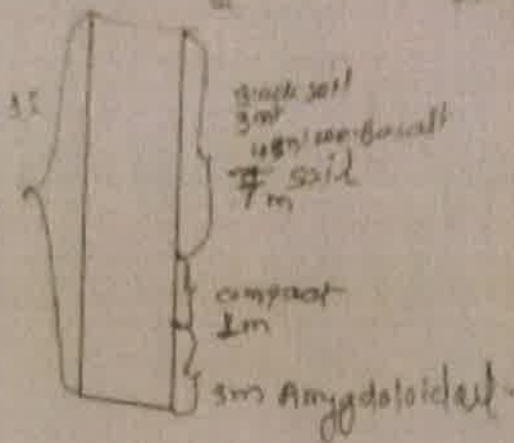 Black soil
3mt
Basalt
7m soil
compact
1m
3m Amygdoloidal.